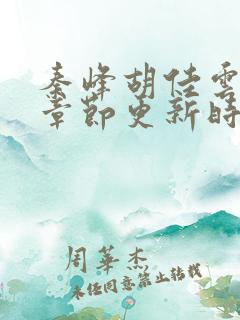 秦峰胡佳雲
章節更新時
周華杰
未经同意禁止转载